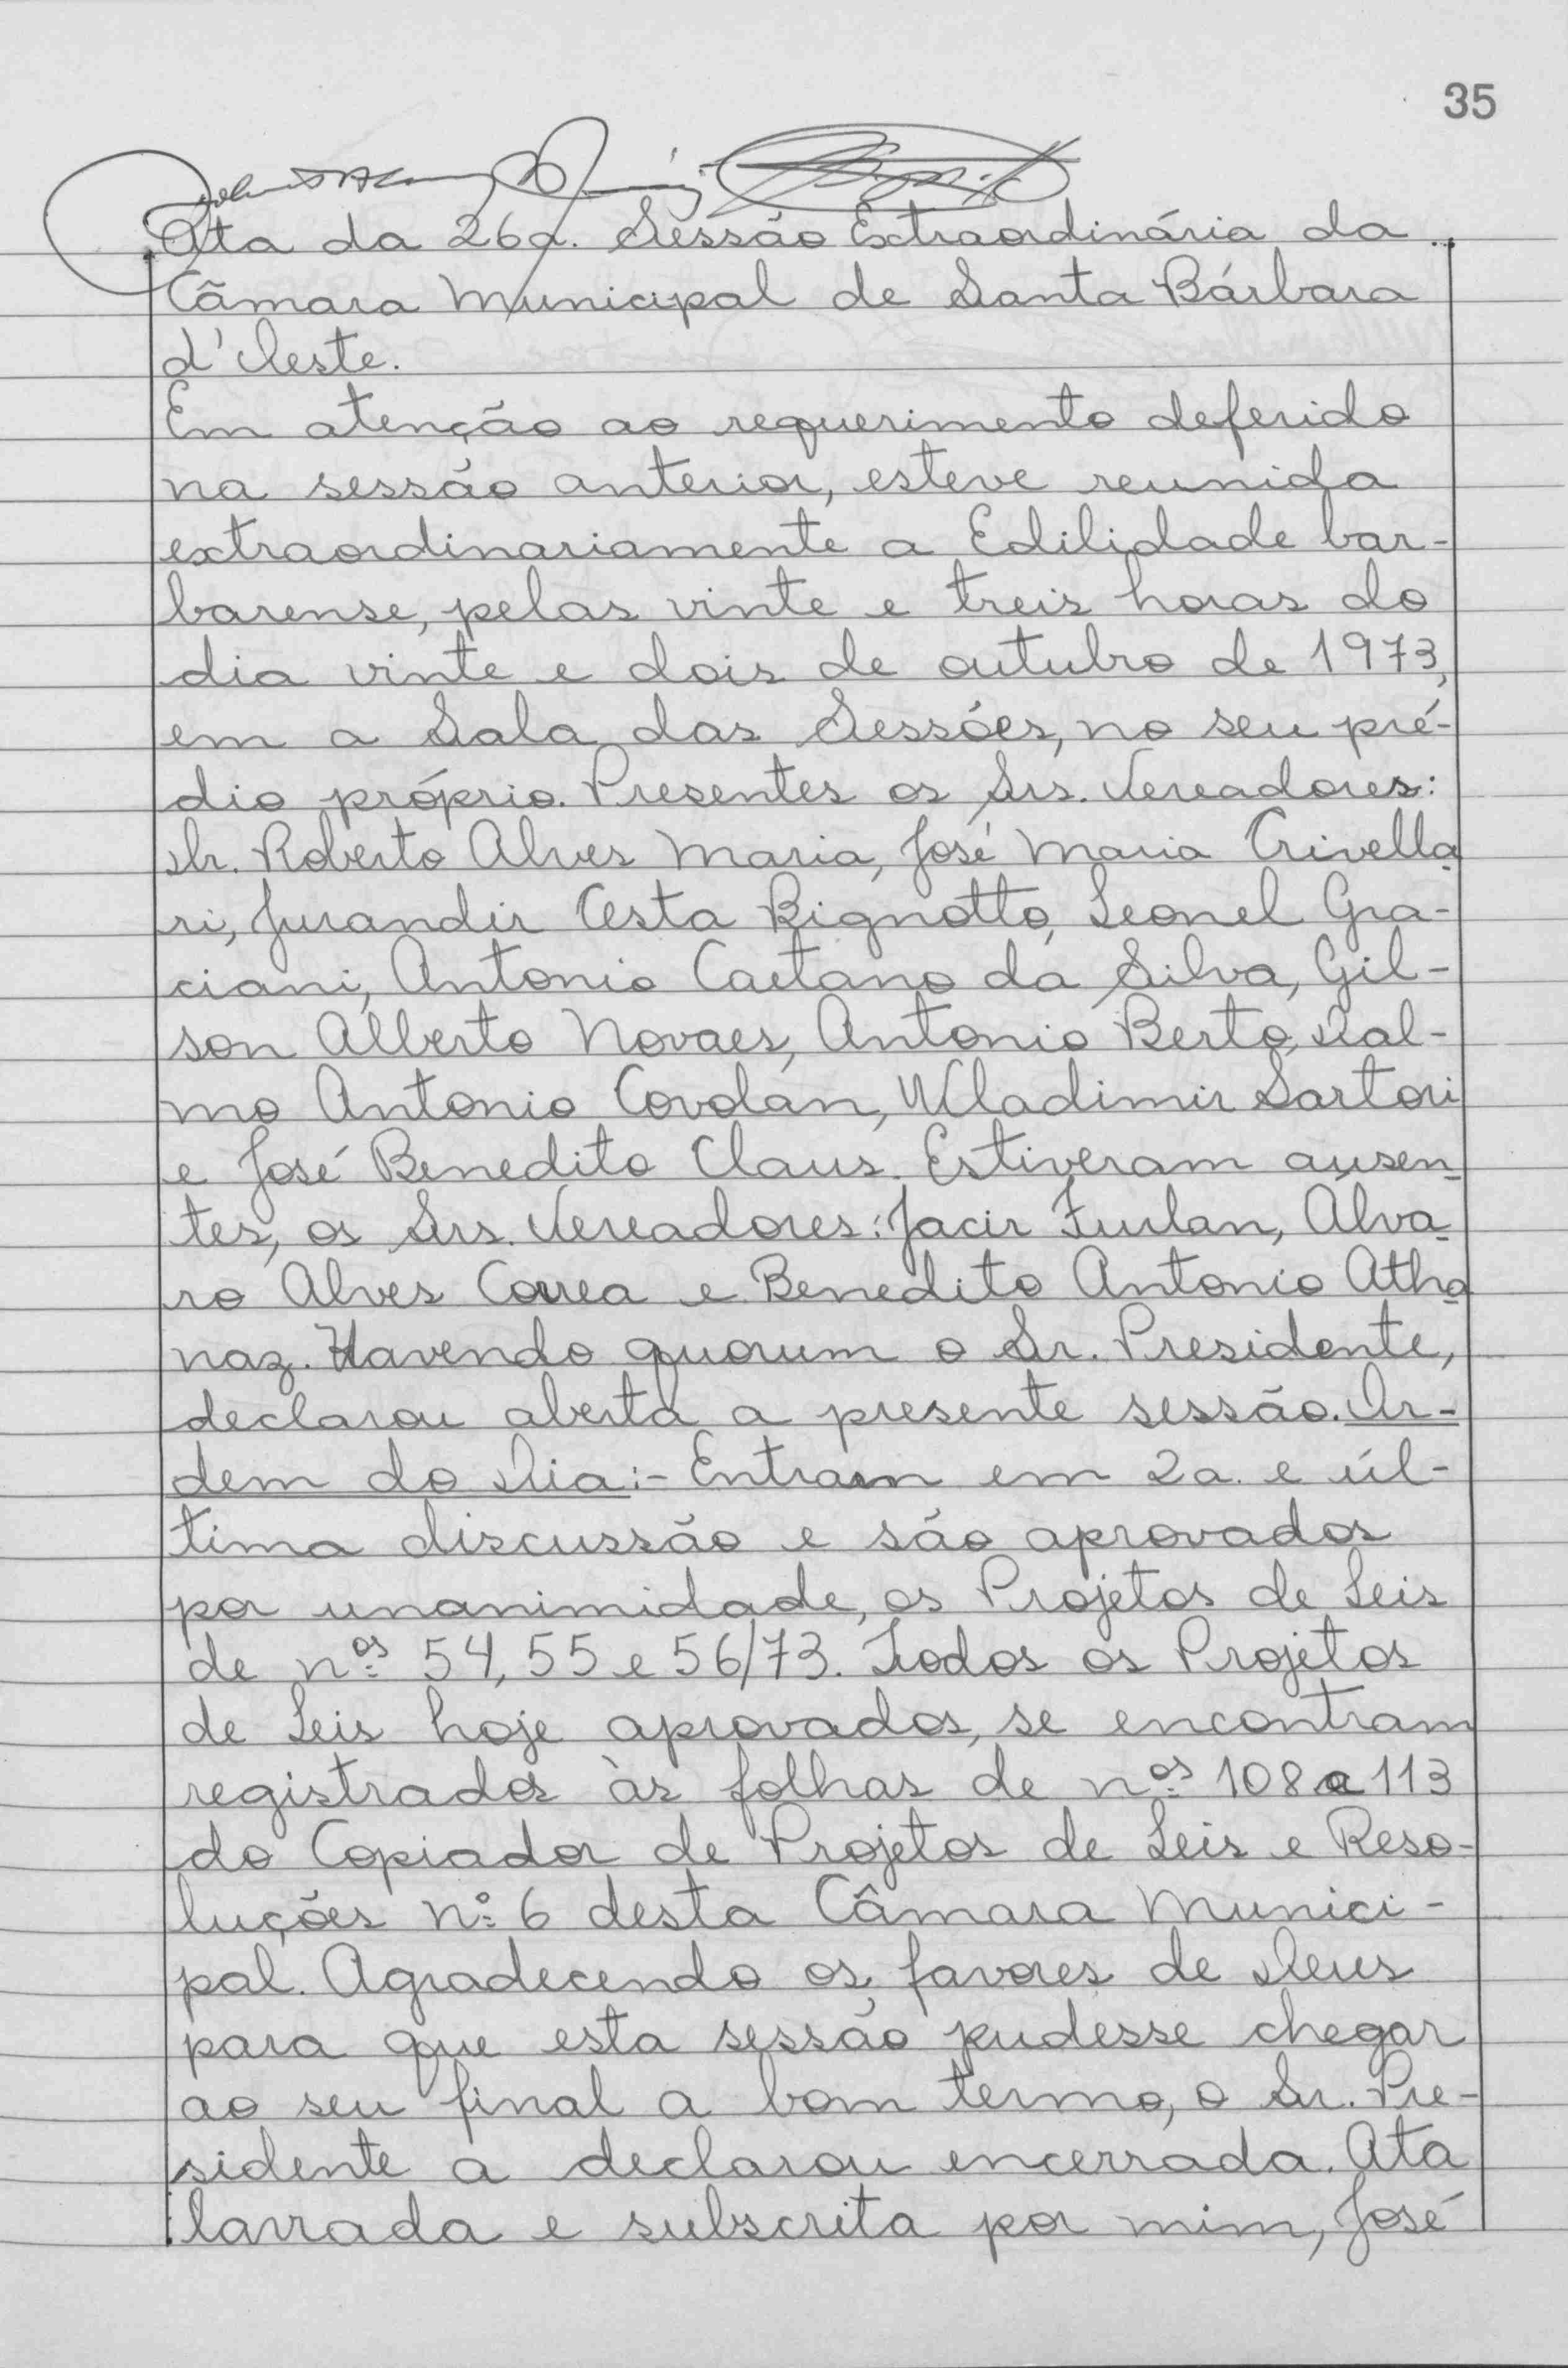 35
Ata da 26a. Sessão Extraordinária da
Câmara Municipal de Santa Bárbara
d'Oeste.
Em atenção ao requerimento deferido
na sessão anterior, esteve reunida
extraordinariamente a Edilidade bar-
barense, pelas vinte e treis horas do
dia vinte e dois de outubro de 1973,
em a Sala das Sessões, no seu pré-
dio próprio. Presentes os Srs. Vereadores:
Dr. Roberto Alves Maria, José Maria Crivella
ri, Jurandir Cesta Bignotto, Leonel Gra-
ciani, Antonio Caetano da Silva, Gil-
son Alberto Novaes, Antonio Berto, Dal-
mo Antonio Covolan, Wladimir Sartori
e José Benedito Claus. Estiveram ausen
tes, os Srs. Vereadores: Jacir Furlan, Alva
ro Alves Correa e Benedito Antonio Atha
naz. Havendo quorum o Sr. Presidente,
declarou aberta a presente sessão. Or-
dem do Dia:- Entram em 2a. e úl-
tima discussão e são aprovados
por unanimidade, os Projetos de Leis
de nºs 54, 55 e 56/73. Todos os Projetos
de Leis hoje aprovados, se encontram
registrados às folhas de nºs 108 a 113
do Copiador de Projetos de Leis e Reso-
luções nº 6 desta Câmara Munici-
pal. Agradecendo os favores de Deus
para que esta sessão pudesse chegar
ao seu final a bom termo, o Sr. Pre-
sidente a declarou encerrada. Ata
lavrada e subscrita por mim, José